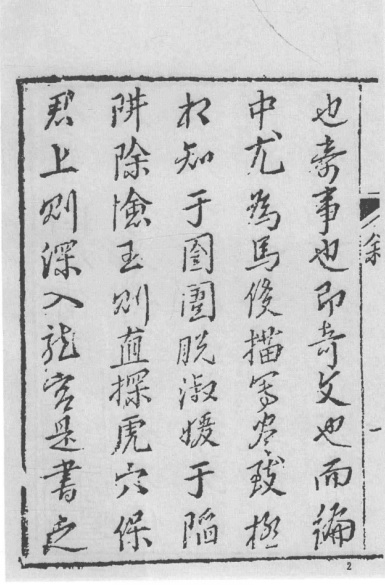 也奇事也即奇文也而編
中尤為馬俊描寫盡致極
相知于囹圄脫淑媛于陷
阱除憸壬则直探虎穴保
君上则深入龍宮是書之
一
2